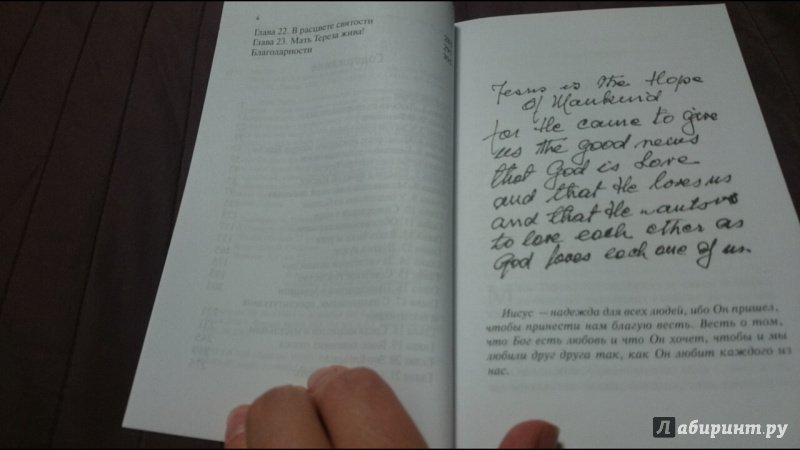 4
Глава 22. В расцвете святости
Глава 23. Мать Тереза жива!
Благодарности
Jesus is the Hope
of Mankind
for He came to give
us the good news
that God is Love
and that He loves us
and that He wants us
to love each other as
God loves each one of us.
Иисус — надежда для всех людей, ибо Он пришел,
чтобы принести нам благую весть. Весть о том,
что Бог есть любовь и что Он хочет, чтобы и мы
любили друг друга так, как Он любит каждого из
нас.
Лабиринт.ру